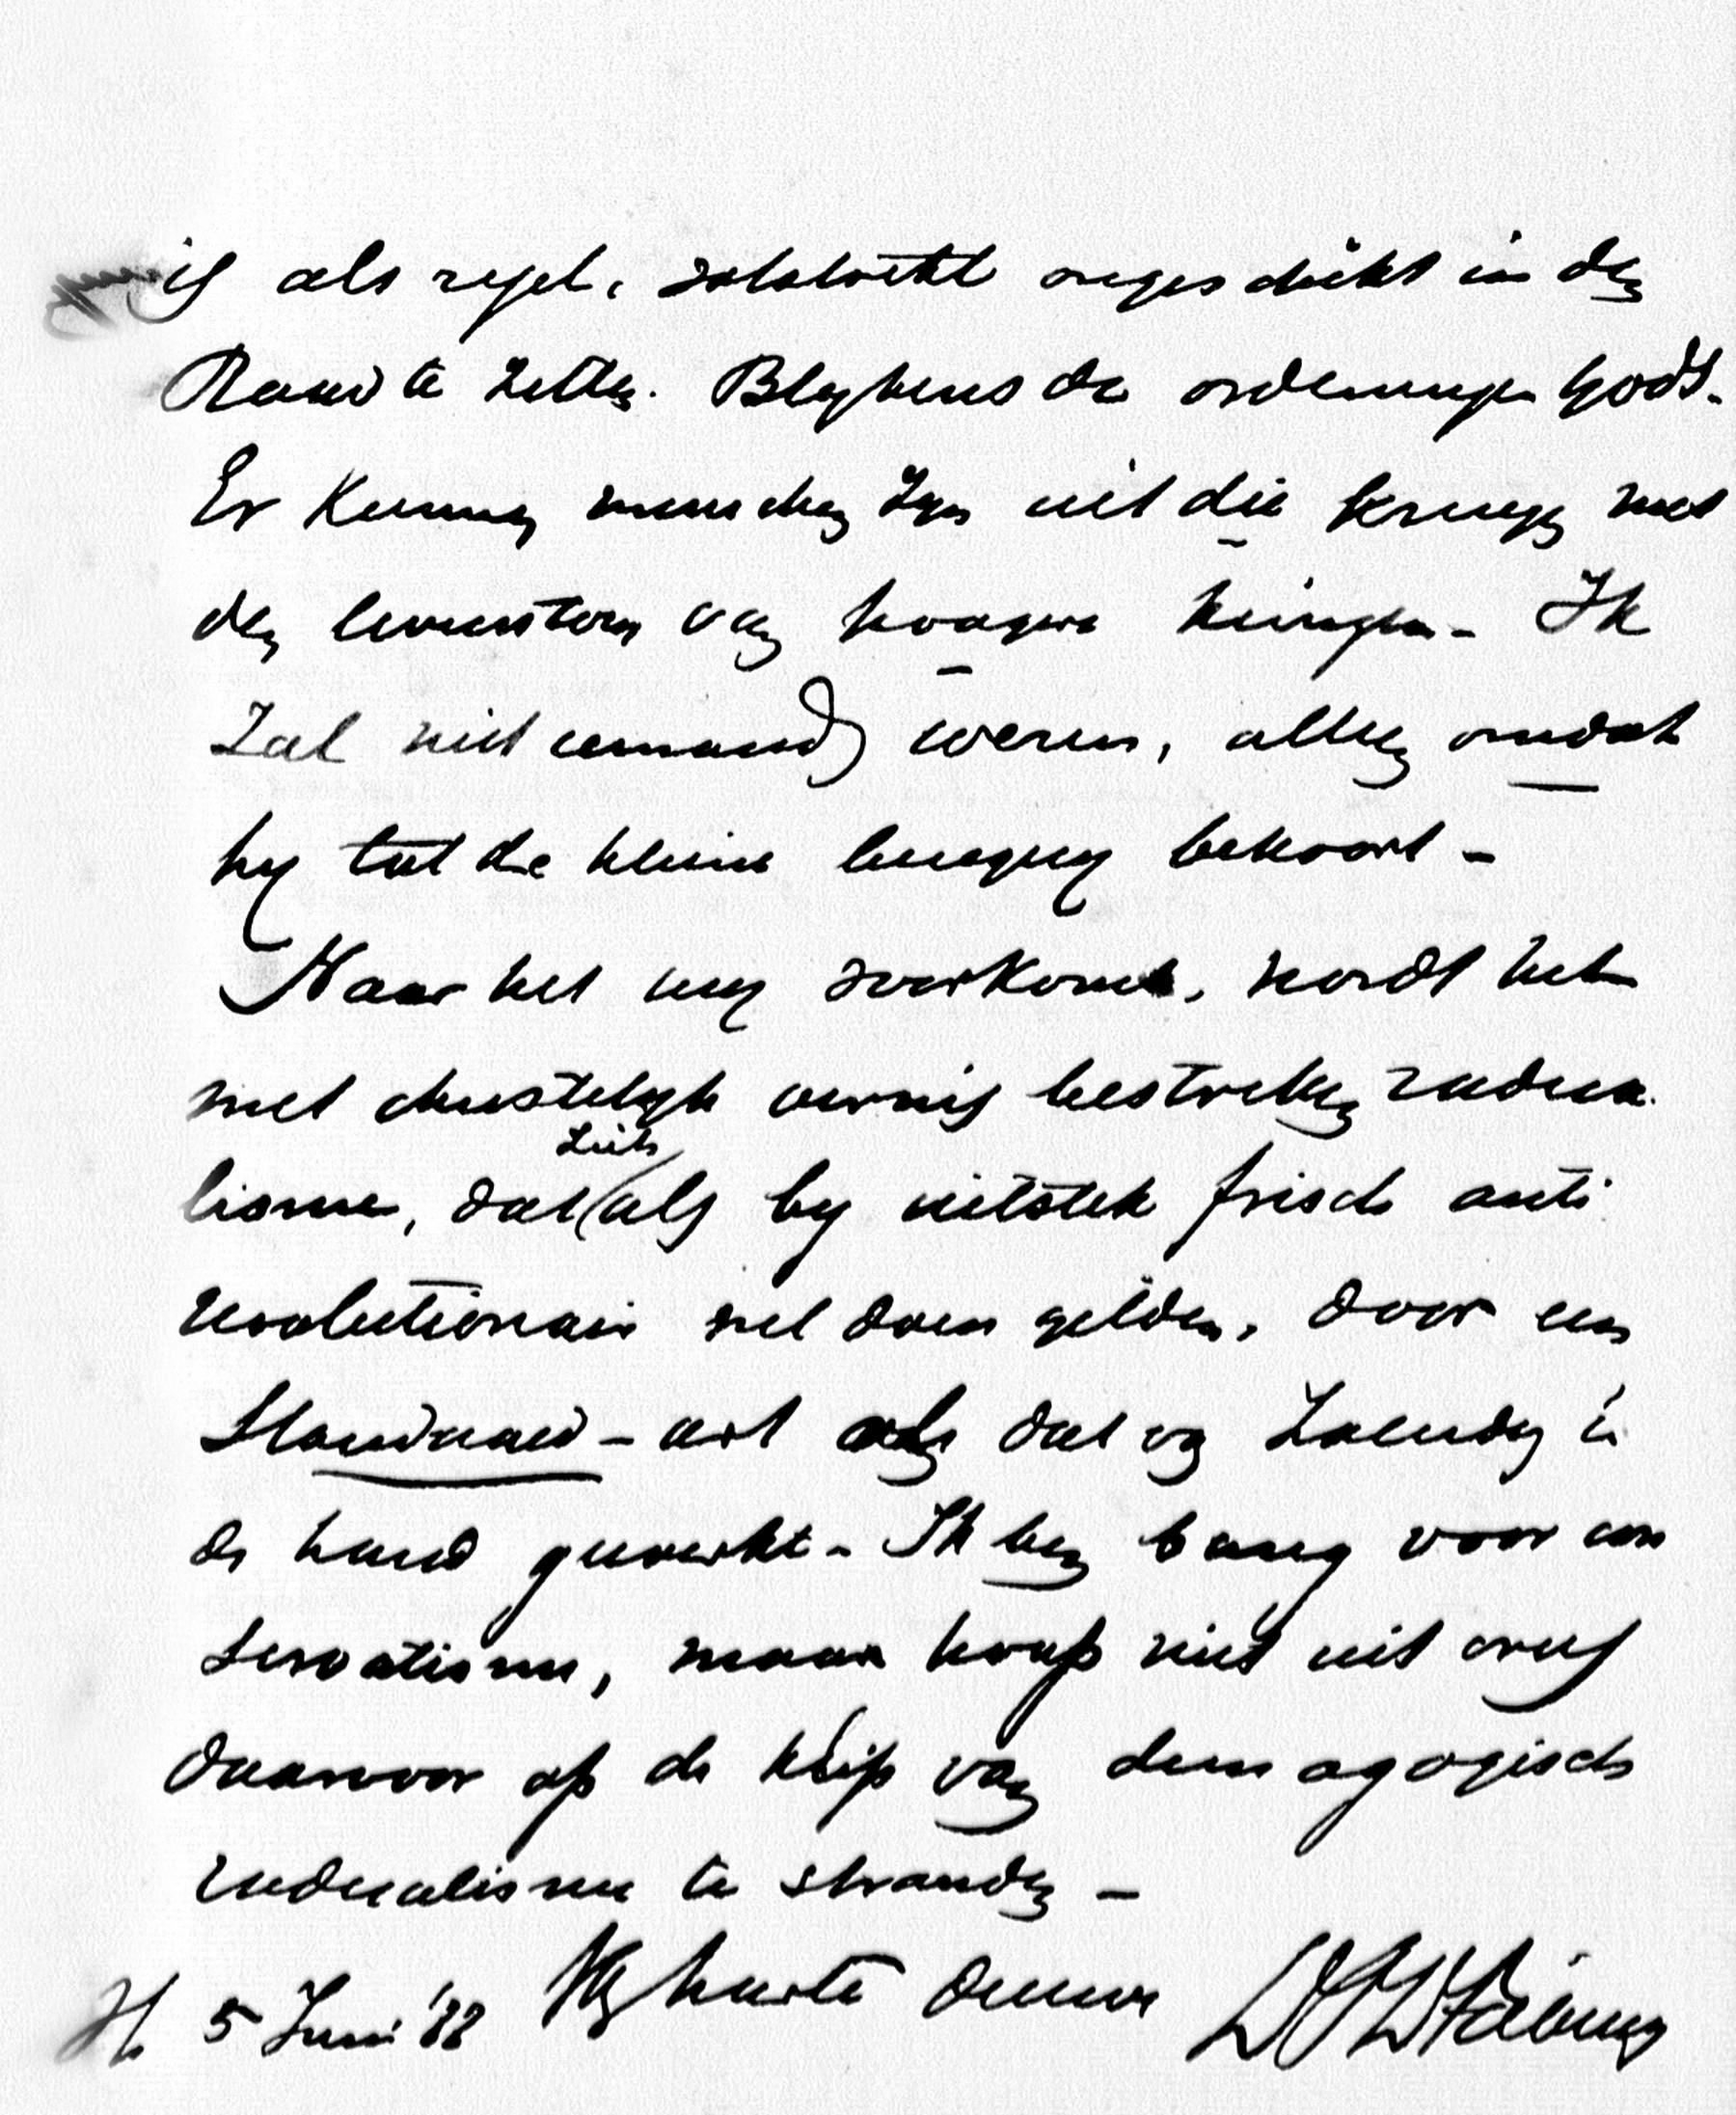 is als regel, volstrekt ongeschikt in den
Raad te zetten. Blykens de ordeningen Gods.
Er kunnen menschen zyn uit die kringen met
den levenstoon van hoogere kringen - Ik
zal niet iemand weren, alleen omdat
hy tot de kleine burgery behoort -
Naar het my voorkomt, wordt het
met christelyk vernis bestreken radica
lisme, dat zich als by uitstek frisch anti
revolutionair wil doen gelden, door een
Standaard - art als dat van Zaturdag in
de hand gewerkt - Ik ben bang voor con
servatisme, maar hoop niet uit vrees
daarvoor op de klip van demagogisch
radicalisme te stranden -
H 5 Juni '88 Van harte de uwe